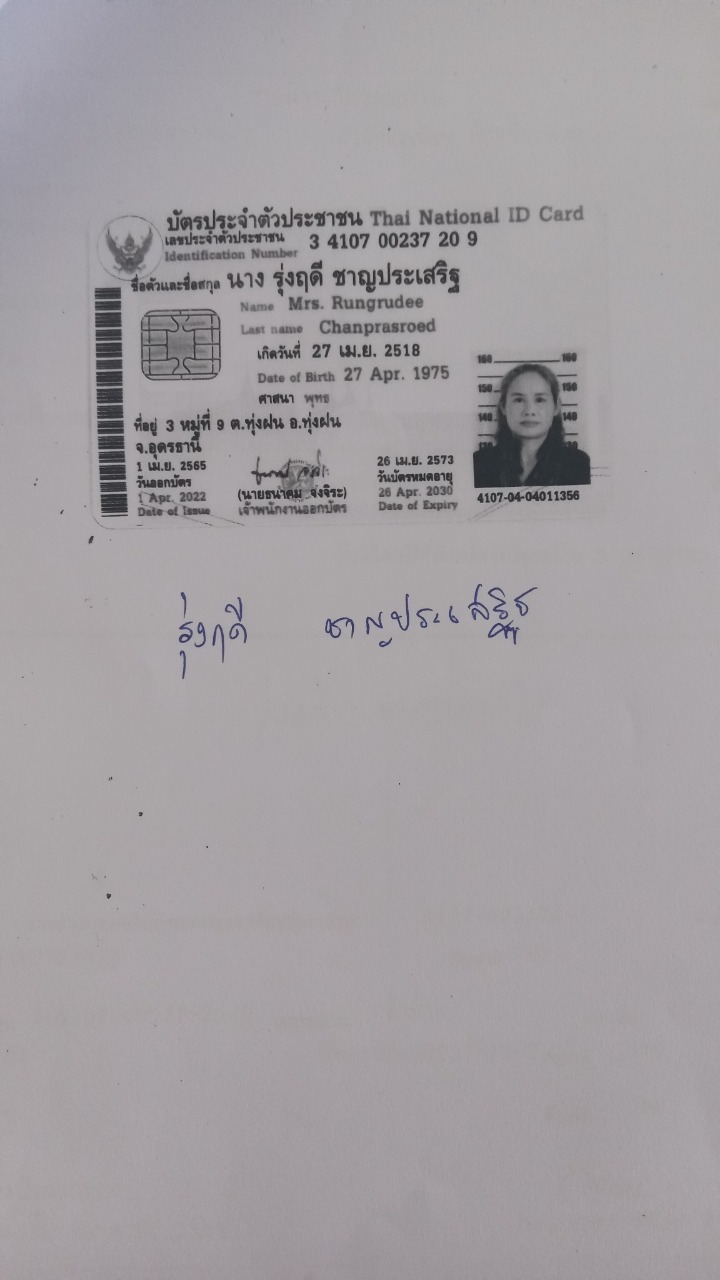 บัตรประจำตัวประชาชน Thai National ID Card
เลขประจำตัวประชาชน 3 4107 00237 20 9
Identification Number
ชื่อตัวและชื่อสกุล นาง รุ่งฤดี ชาญประเสริฐ
Name Mrs. Rungrudee
Last name Chanprasroed
เกิดวันที่ 27 เม.ย. 2518
Date of Birth 27 Apr. 1975
ศาสนา พุทธ
ที่อยู่ 3 หมู่ที่ 9 ต.ทุ่งฝน อ.ทุ่งฝน
จ.อุดรธานี
1 เม.ย. 2565
วันออกบัตร
1 Apr. 2022
Date of Issue
(นายธนาคม จงจิระ)
เจ้าพนักงานออกบัตร
26 เม.ย. 2573
วันบัตรหมดอายุ
26 Apr. 2030
Date of Expiry
160 160
150 150
140 140
4107-04-04011356
รุ่งฤดี ชาญประเสริฐ